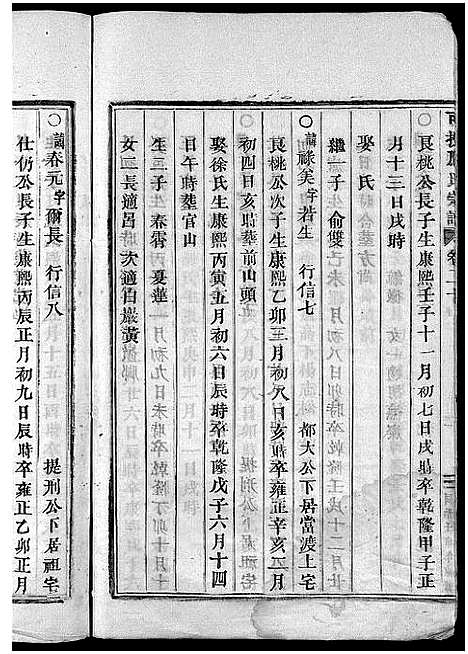 良桃公長子生康熙壬子十一月初七日戌時卒乾隆甲子正
月十三日戌時
娶 氏
繼一子俞雙
○諱祿美字若生 行信七 都大公下居當渡上宅
良桃公次子生康熙乙卯三月初八日亥時卒雍正辛亥二月
初四日亥時葬前山頭
娶徐氏生康熙丙寅五月初六日辰時卒乾隆戊子六月十四
日午時葬官山
生二子 春霄 夏蓮
女二長適呂 次適伯嚴黃
○諱春元字爾長 行信八 提刑公下居祖宅
仕仍公長子生康熙丙辰正月初九日辰時卒雍正乙卯正月